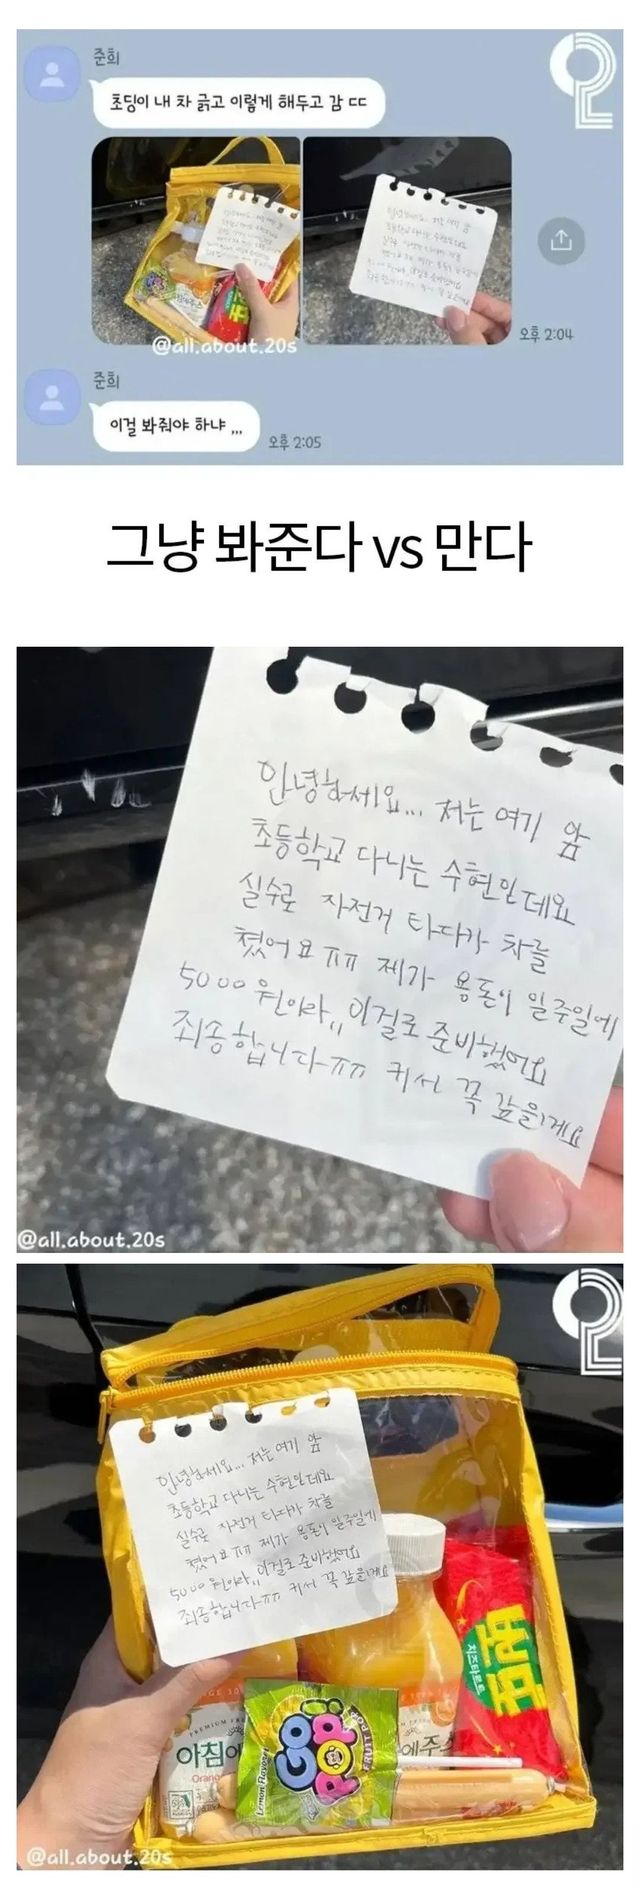 준희
초딩이 내 차 긁고 이렇게 해두고 감 ㄷㄷ
@all.about.20s
오후 2:04
준희
이걸 봐줘야 하냐 ,,,
오후 2:05
그냥 봐준다 vs 만다
안녕하세요... 저는 여기 앞
초등학교 다니는 수현인데요
실수로 자전거 타다가 차를
쳤어요ㅠㅠ 제가 용돈이 일주일에
5000원이라,, 이걸로 준비했어요
죄송합니다ㅠㅠ 커서 꼭 갚을게요
@all.about.20s
안녕하세요... 저는 여기 앞
초등학교 다니는 수현인데요
실수로 자전거 타다가 차를
쳤어요ㅠㅠ 제가 용돈이 일주일에
5000원이라,, 이걸로 준비했어요
죄송합니다ㅠㅠ 커서 꼭 갚을게요
치즈타르트
PREMIUM
아침에
Orange
에주스
GO POP!
Lemon Flavour
@all.about.20s